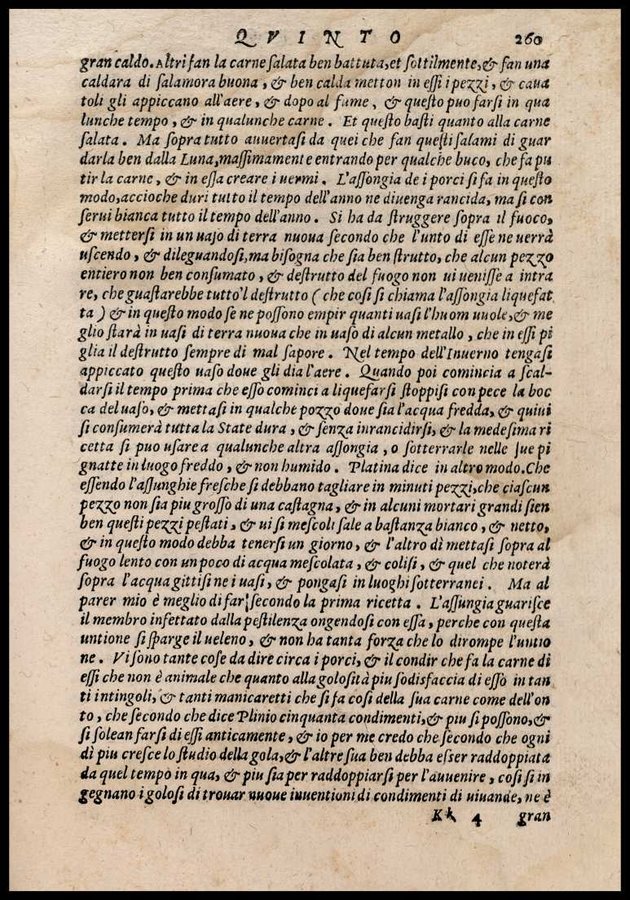 QVINTO 260
gran caldo. Altri fan la carne salata ben battuta, et sottilmente, & fan una
caldara di salamora buona, & ben calda metton in essi i pezzi, & caua
toli gli appiccano all'aere, & dopo al fume, & questo puo farsi in qua
lunche tempo, & in qualunche carne. Et questo basti quanto alla carne
salata. Ma sopra tutto auuertasi da quei che fan questi salami di guar
darla ben dalla Luna, massimamente entrando per qualche buco, che fa pu
tir la carne, & in essa creare i uermi. L'assongia de i porci si fa in questo
modo, accioche duri tutto il tempo dell'anno ne diuenga rancida, ma si con
serui bianca tutto il tempo dell'anno. Si ha da struggere sopra il fuoco,
& mettersi in un uaso di terra nuoua secondo che l'unto di esse ne uerrà
uscendo, & dileguandosi, ma bisogna che sia ben strutto, che alcun pezzo
entiero non ben consumato, & destrutto del fuogo non ui uenisse a intra
re, che guastarebbe tutto'l destrutto (che cosi si chiama l'assongia liquefat
ta) & in questo modo se ne possono empir quanti uasi l'huom uuole, & me
glio starà in uasi di terra nuoua che in uaso di alcun metallo, che in essi pi
glia il destrutto sempre di mal sapore. Nel tempo dell'Inuerno tengasi
appiccato questo uaso doue gli dia l'aere. Quando poi comincia a scal-
darsi il tempo prima che esso cominci a liquefarsi stoppisi con pece la boc
ca del uaso, & mettasi in qualche pozzo doue sia l'acqua fredda, & quiui
si consumerà tutta la State dura, & senza inrancidirsi, & la medesima ri
cetta si puo usare a qualunche altra assongia, o sotterrarle nelle sue pi
gnatte in luogo freddo, & non humido. Platina dice in altro modo. Che
essendo l'assunghie fresche si debbano tagliare in minuti pezzi, che ciascun
pezzo non sia piu grosso di una castagna, & in alcuni mortari grandi sien
ben questi pezzi pestati, & ui si mescoli sale a bastanza bianco, & netto,
& in questo modo debba tenersi un giorno, & l'altro dì mettasi sopra al
fuogo lento con un poco di acqua mescolata, & colisi, & quel che noterà
sopra l'acqua gittisi ne i uasi, & pongasi in luoghi sotterranei. Ma al
parer mio è meglio di far secondo la prima ricetta. L'assungia guarisce
il membro infettato dalla pestilenza ongendosi con essa, perche con questa
untione si sparge il ueleno, & non ha tanta forza che lo dirompe l'untio
ne. Vi sono tante cose da dire circa i porci, & il condir che fa la carne di
essi che non è animale che quanto alla golosità piu sodisfaccia di esso in tan
ti intingoli, & tanti manicaretti che si fa cosi della sua carne come dell'on
to, che secondo che dice Plinio cinquanta condimenti, & piu si possono, &
si solean farsi di essi anticamente, & io per me credo che secondo che ogni
dì piu cresce lo studio della gola, & l'altre sua ben debba esser raddoppiata
da quel tempo in qua, & piu sia per raddoppiarsi per l'auuenire, cosi si in
gegnano i golosi di trouar nuoue inuentioni di condimenti di uiuande, ne è
Kk 4 gran